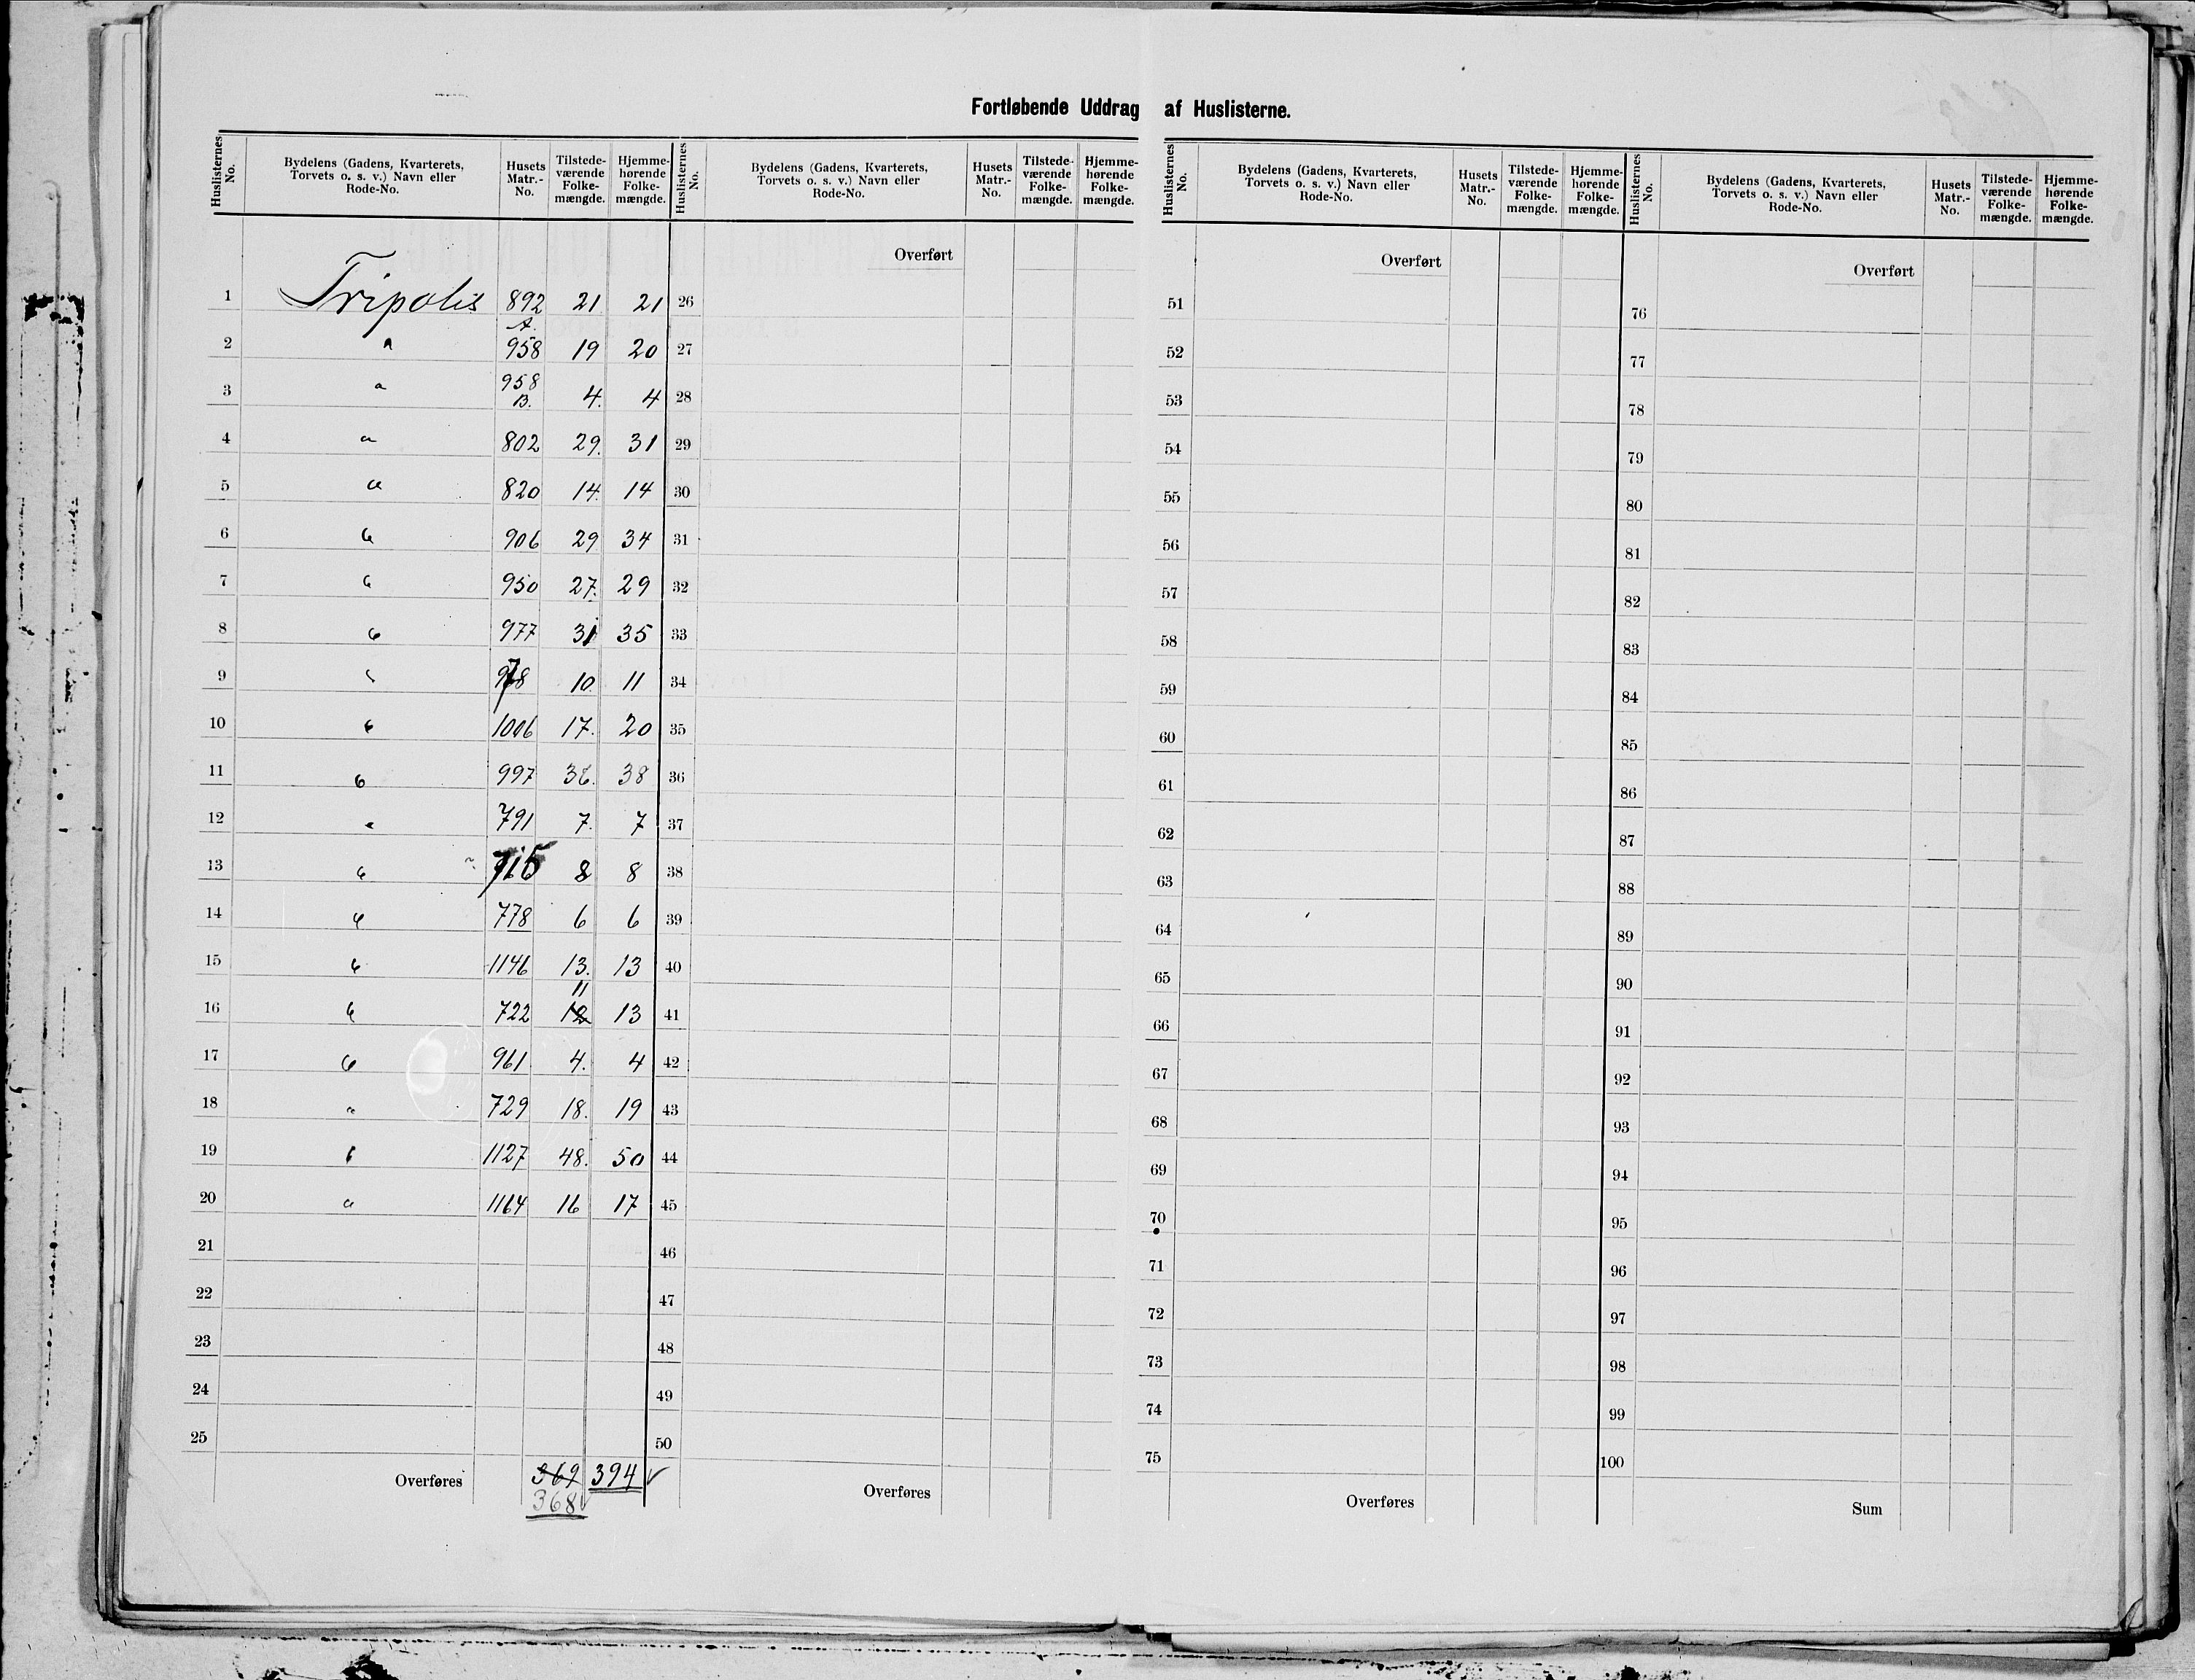 Fortløbende Uddrag af Huslisterne.
Huslisternes No. Bydelens (Gadens, Kvarterets, Torvets o. s. v.) Navn eller Rode-No. Husets Matr.-No. Tilstede-værende Folke-mængde. Hjemme-hørende Folke-mængde.
1 Tripolis 892 21 21
2 " A. 958 19 20
3 " 958 B. 4. 4
4 " 802 29. 31
5 " 820 14. 14
6 " 906 29 34
7 " 950 27. 29
8 " 977 31 35
9 " 978 10. 11
10 " 1006 17. 20
11 " 997 38
12 " 791 7. 7
13 " 715 8 8
14 " 778 6 6
15 " 1146 13. 13
16 " 722 11 12 13
17 " 961 4. 4
18 " 729 18. 19
19 " 1127 48. 50
20 " 1164 16 17
21
22
23
24
25
Overføres 369 394 ✓
368 ✓
Huslisternes No. Bydelens (Gadens, Kvarterets, Torvets o. s. v.) Navn eller Rode-No. Husets Matr.-No. Tilstede-værende Folke-mængde. Hjemme-hørende Folke-mængde.
Overført
26
27
28
29
30
31
32
33
34
35
36
37
38
39
40
41
42
43
44
45
46
47
48
49
50
Overføres
Huslisternes No. Bydelens (Gadens, Kvarterets, Torvets o. s. v.) Navn eller Rode-No. Husets Matr.-No. Tilstede-værende Folke-mængde. Hjemme-hørende Folke-mængde.
Overført
51
52
53
54
55
56
57
58
59
60
61
62
63
64
65
66
67
68
69
70
71
72
73
74
75
Overføres
Huslisternes No. Bydelens (Gadens, Kvarterets, Torvets o. s. v.) Navn eller Rode-No. Husets Matr.-No. Tilstede-værende Folke-mængde. Hjemme-hørende Folke-mængde.
Overført
76
77
78
79
80
81
82
83
84
85
86
87
88
89
90
91
92
93
94
95
96
97
98
99
100
Sum